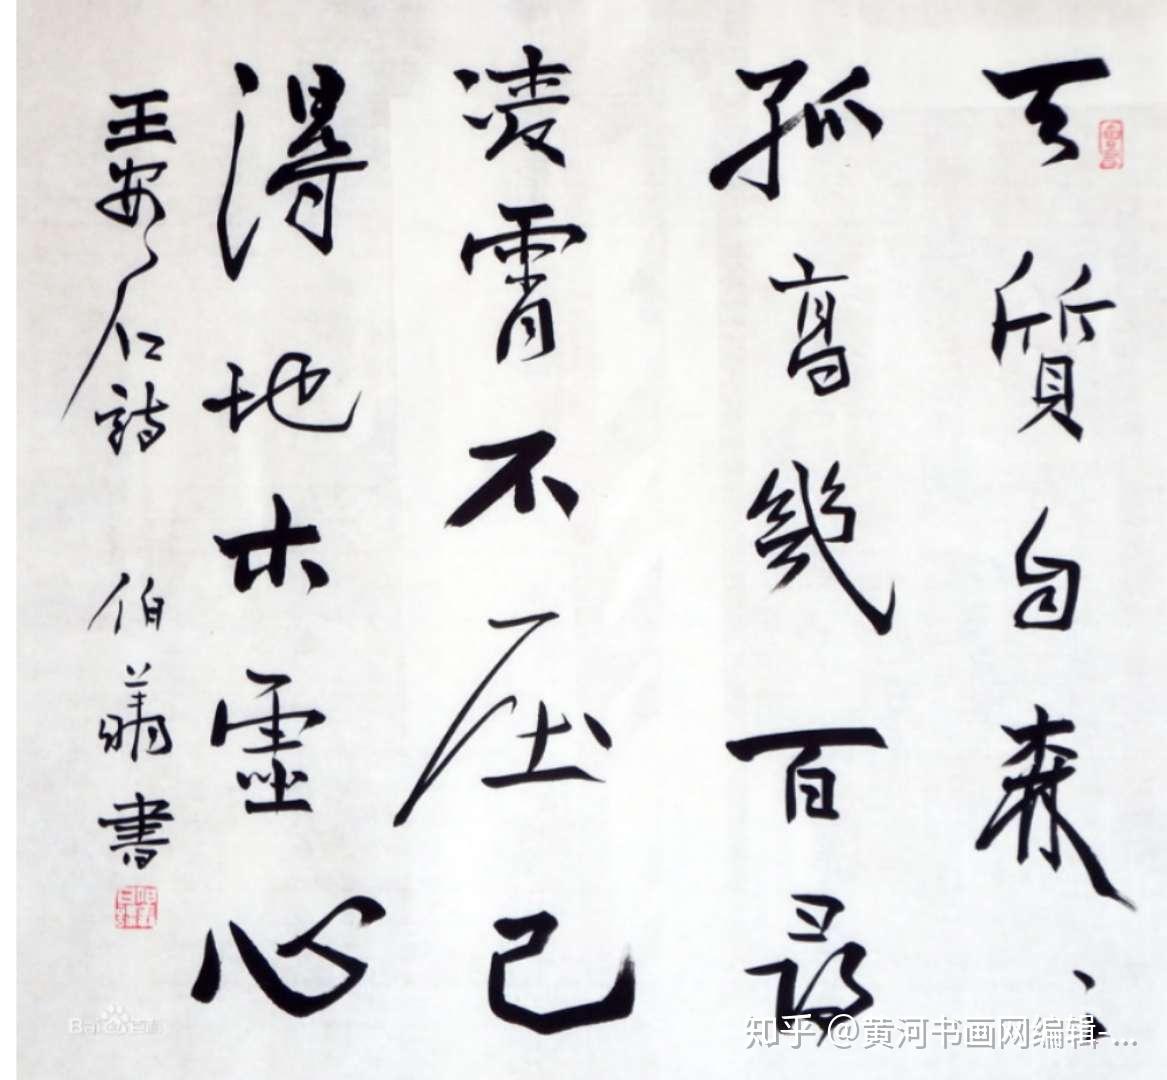 天質自森々
孤高幾百尋
凌霄不压己
得地本虛心
王安石詩 伯 書
Baidu百科
知乎 @黄河书画网编辑-...